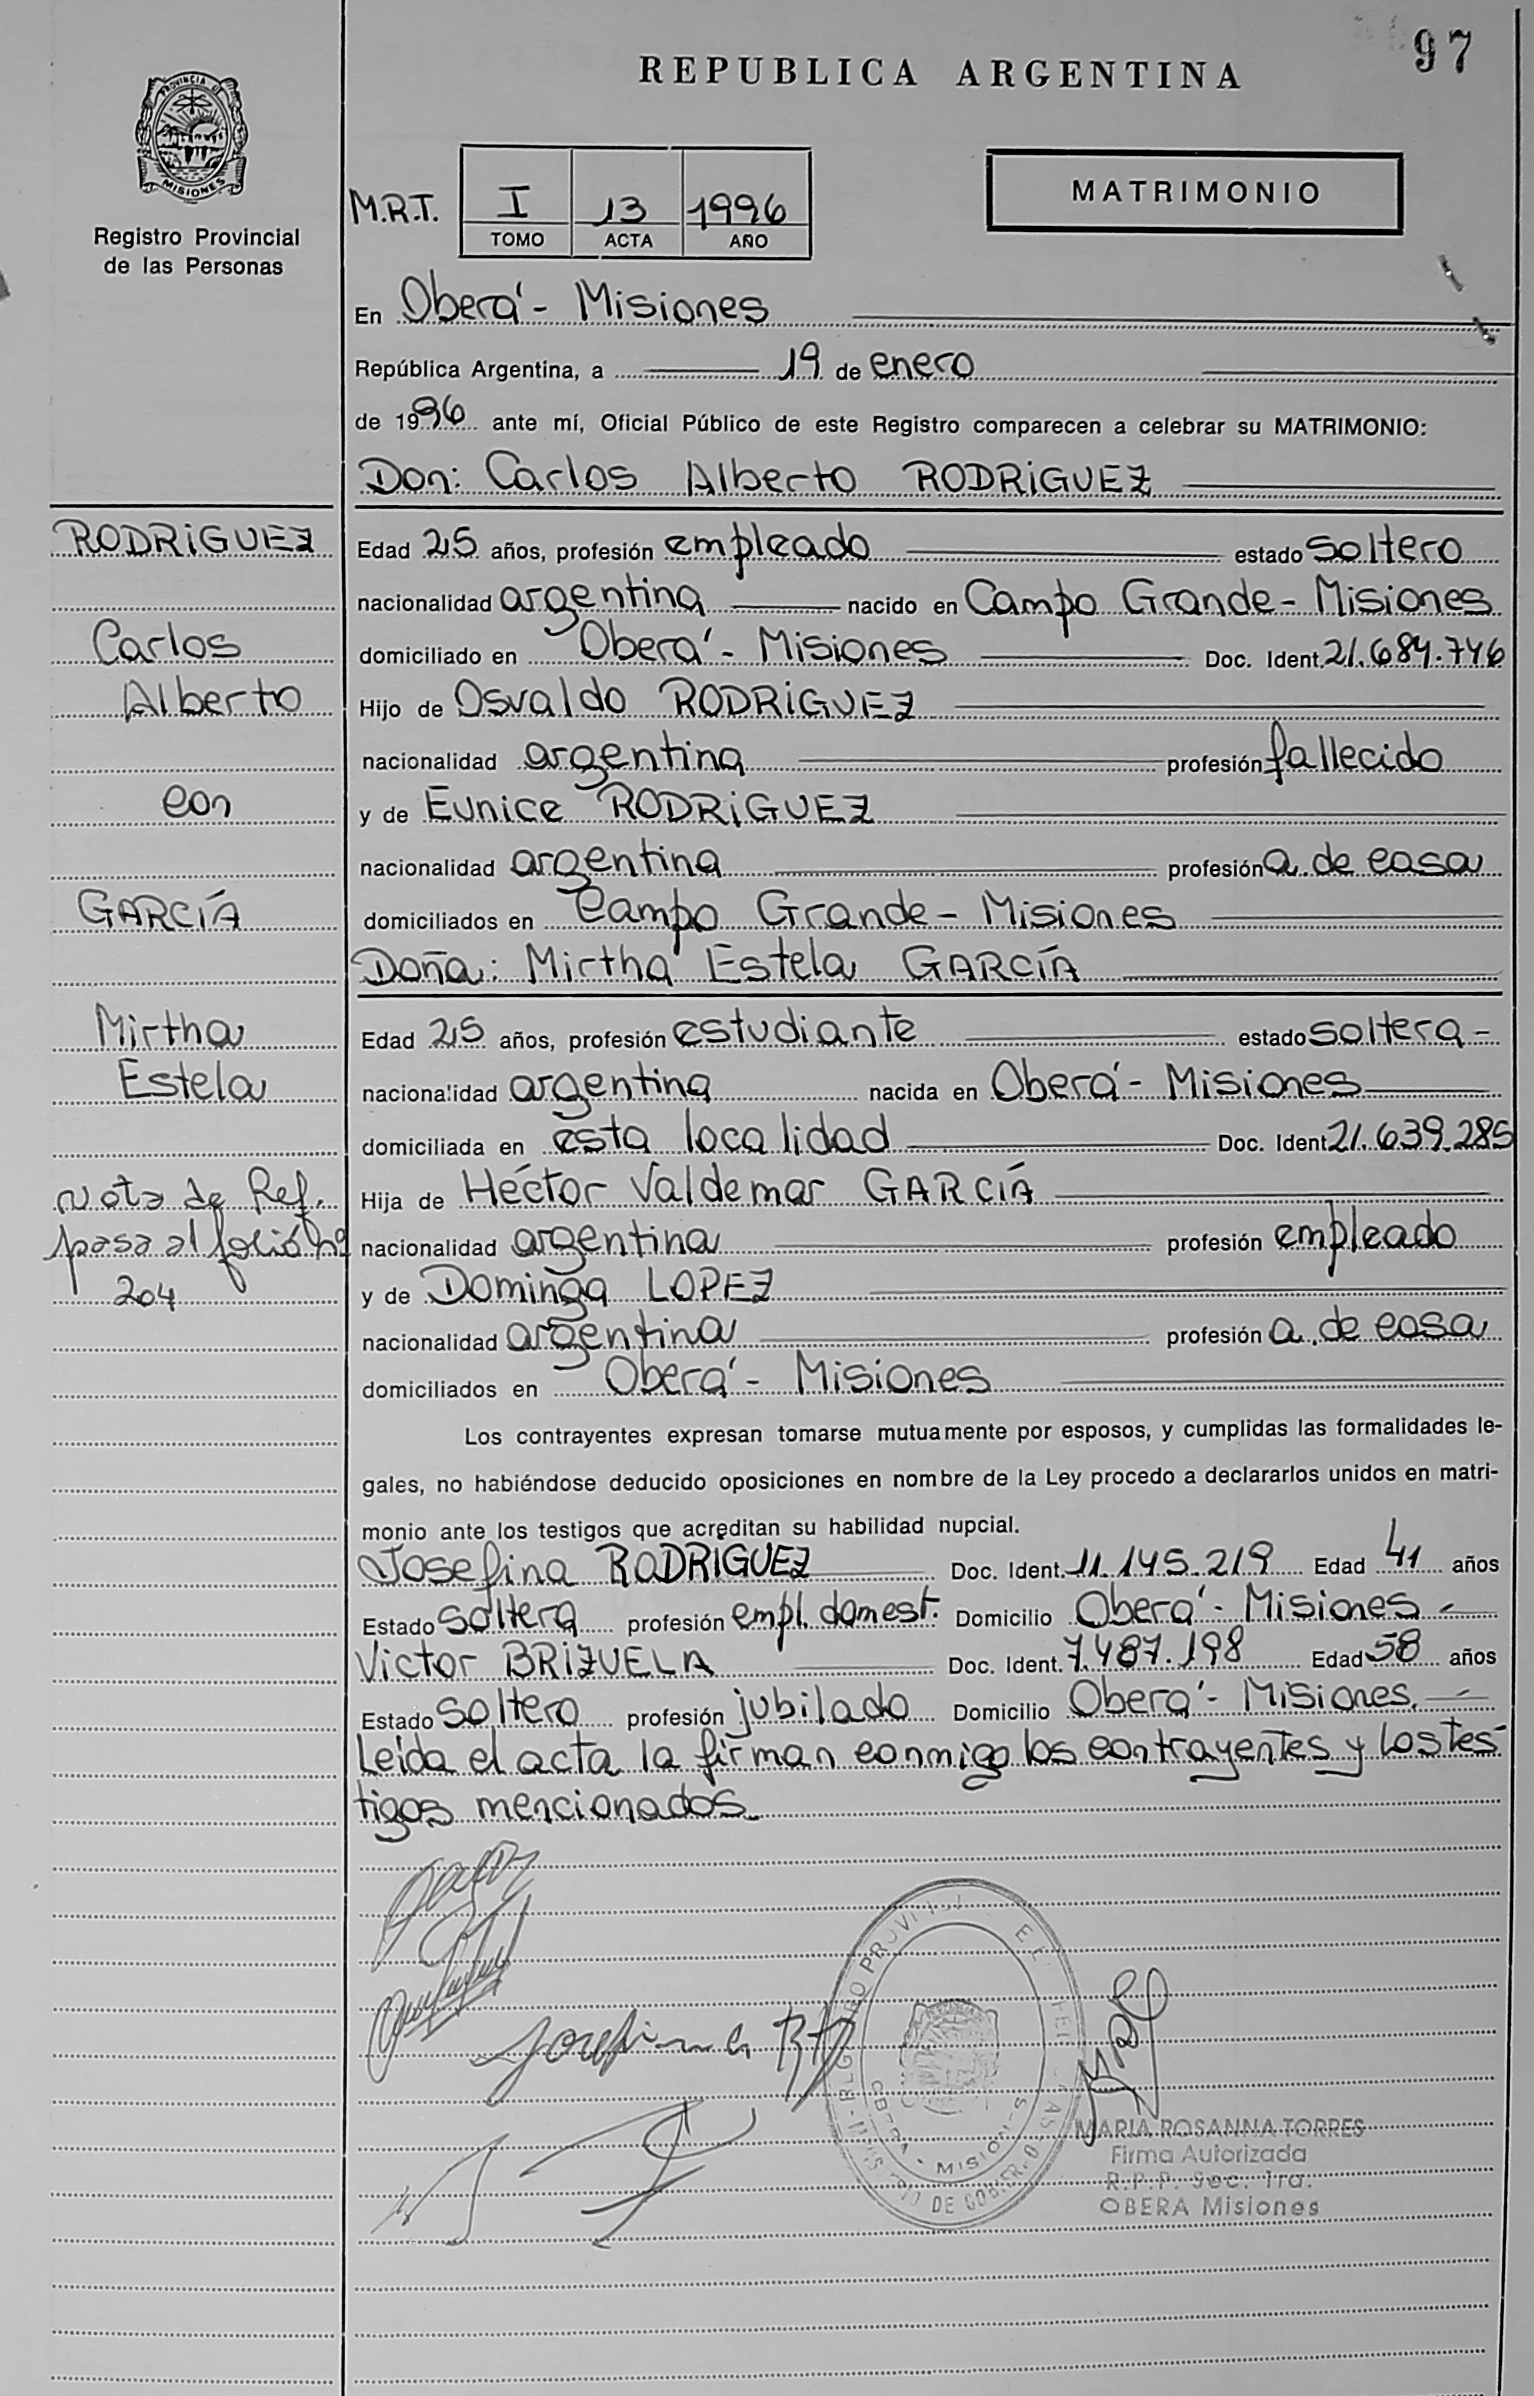 97
REPUBLICA ARGENTINA
PROVINCIA DE
MISIONES
Registro Provincial
de las Personas
M.R.T. I 13 1996
TOMO ACTA AÑO
MATRIMONIO
En Oberá - Misiones
República Argentina, a 19 de enero
de 1996 ante mí, Oficial Público de este Registro comparecen a celebrar su MATRIMONIO:
Don: Carlos Alberto RODRiGUEZ
Edad 25 años, profesión empleado estado soltero
nacionalidad argentina nacido en Campo Grande - Misiones
domiciliado en Oberá - Misiones Doc. Ident. 21.684.746
Hijo de Osvaldo RODRiGUEZ
nacionalidad argentina profesión fallecido
y de Eunice RODRiGUEZ
nacionalidad argentina profesión a. de casa
domiciliados en Campo Grande - Misiones
Doña: Mirtha Estela GARCÍA
Edad 25 años, profesión estudiante estado soltera -
nacionalidad argentina nacida en Oberá - Misiones
domiciliada en esta localidad Doc. Ident 21.639.285
Hija de Héctor Valdemar GARCÍA
nacionalidad argentina profesión empleado
y de Dominga LOPEZ
nacionalidad argentina profesión a. de casa
domiciliados en Oberá - Misiones
Los contrayentes expresan tomarse mutuamente por esposos, y cumplidas las formalidades le-
gales, no habiéndose deducido oposiciones en nombre de la Ley procedo a declararlos unidos en matri-
monio ante los testigos que acreditan su habilidad nupcial.
Josefina RODRIGUEZ Doc. Ident. 11.145.219 Edad 41 años
Estado soltera profesión empl. domest. Domicilio Oberá - Misiones -
Victor BRIZUELA Doc. Ident. 7.487.198 Edad 58 años
Estado soltero profesión jubilado Domicilio Oberá - Misiones. -
Leida el acta la firman conmigo los contrayentes y los tes-
tigos mencionados.
RODRiGUEZ
Carlos
Alberto
con
GARCÍA
Mirtha
Estela
Nota de Ref.
pasa al folio nº
204
Josefina
MISIONES
MARIA ROSANNA TORRES
Firma Autorizada
R.P.P. Sec. 1ra.
OBERA Misiones